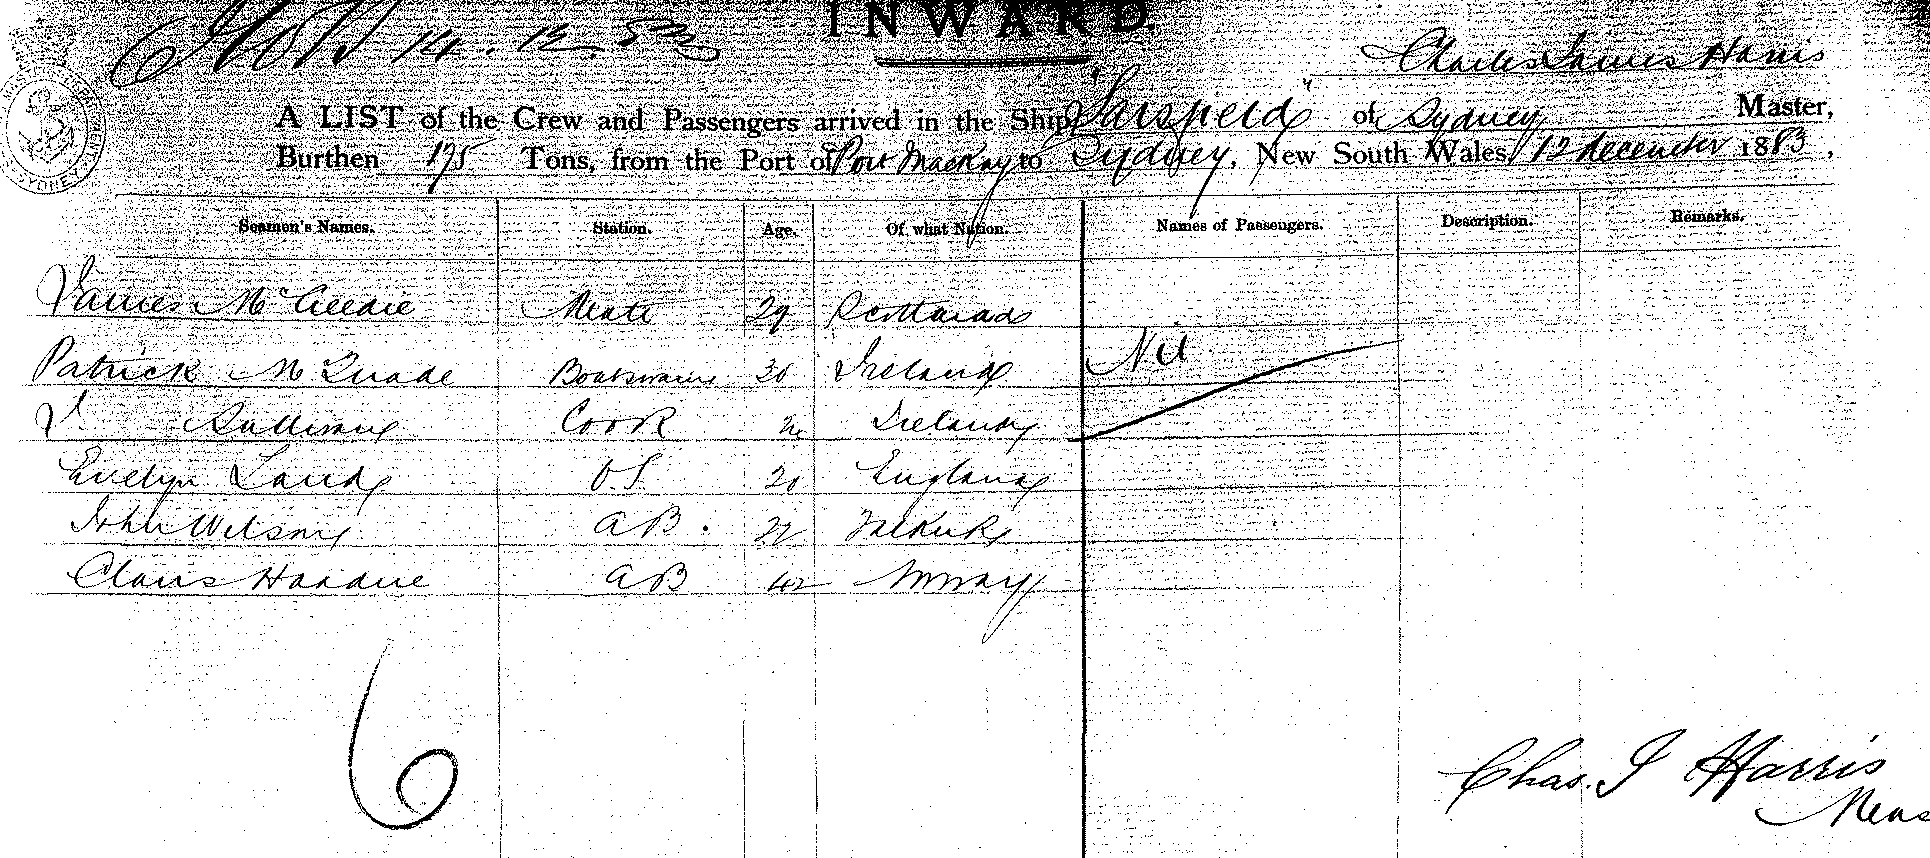 INWARD.
14.12.83
Charles James Harris
A LIST of the Crew and Passengers arrived in the Ship "Sarsfield" of Sydney Master,
Burthen 175 Tons, from the Port of Port Mackay to Sydney, New South Wales, 12 december 1883,
Seamen's Names. Station. Age. Of what Nation. Names of Passengers. Description. Remarks.
James Mate 29 Scotland
Patrick McQuade Boatswain 30 Ireland Nil
J Sullivan Cook Ireland
Evelyn Land O.S. 20 England
John Wilson AB. 22
Claus AB 42 Norway
6
Chas. J Harris